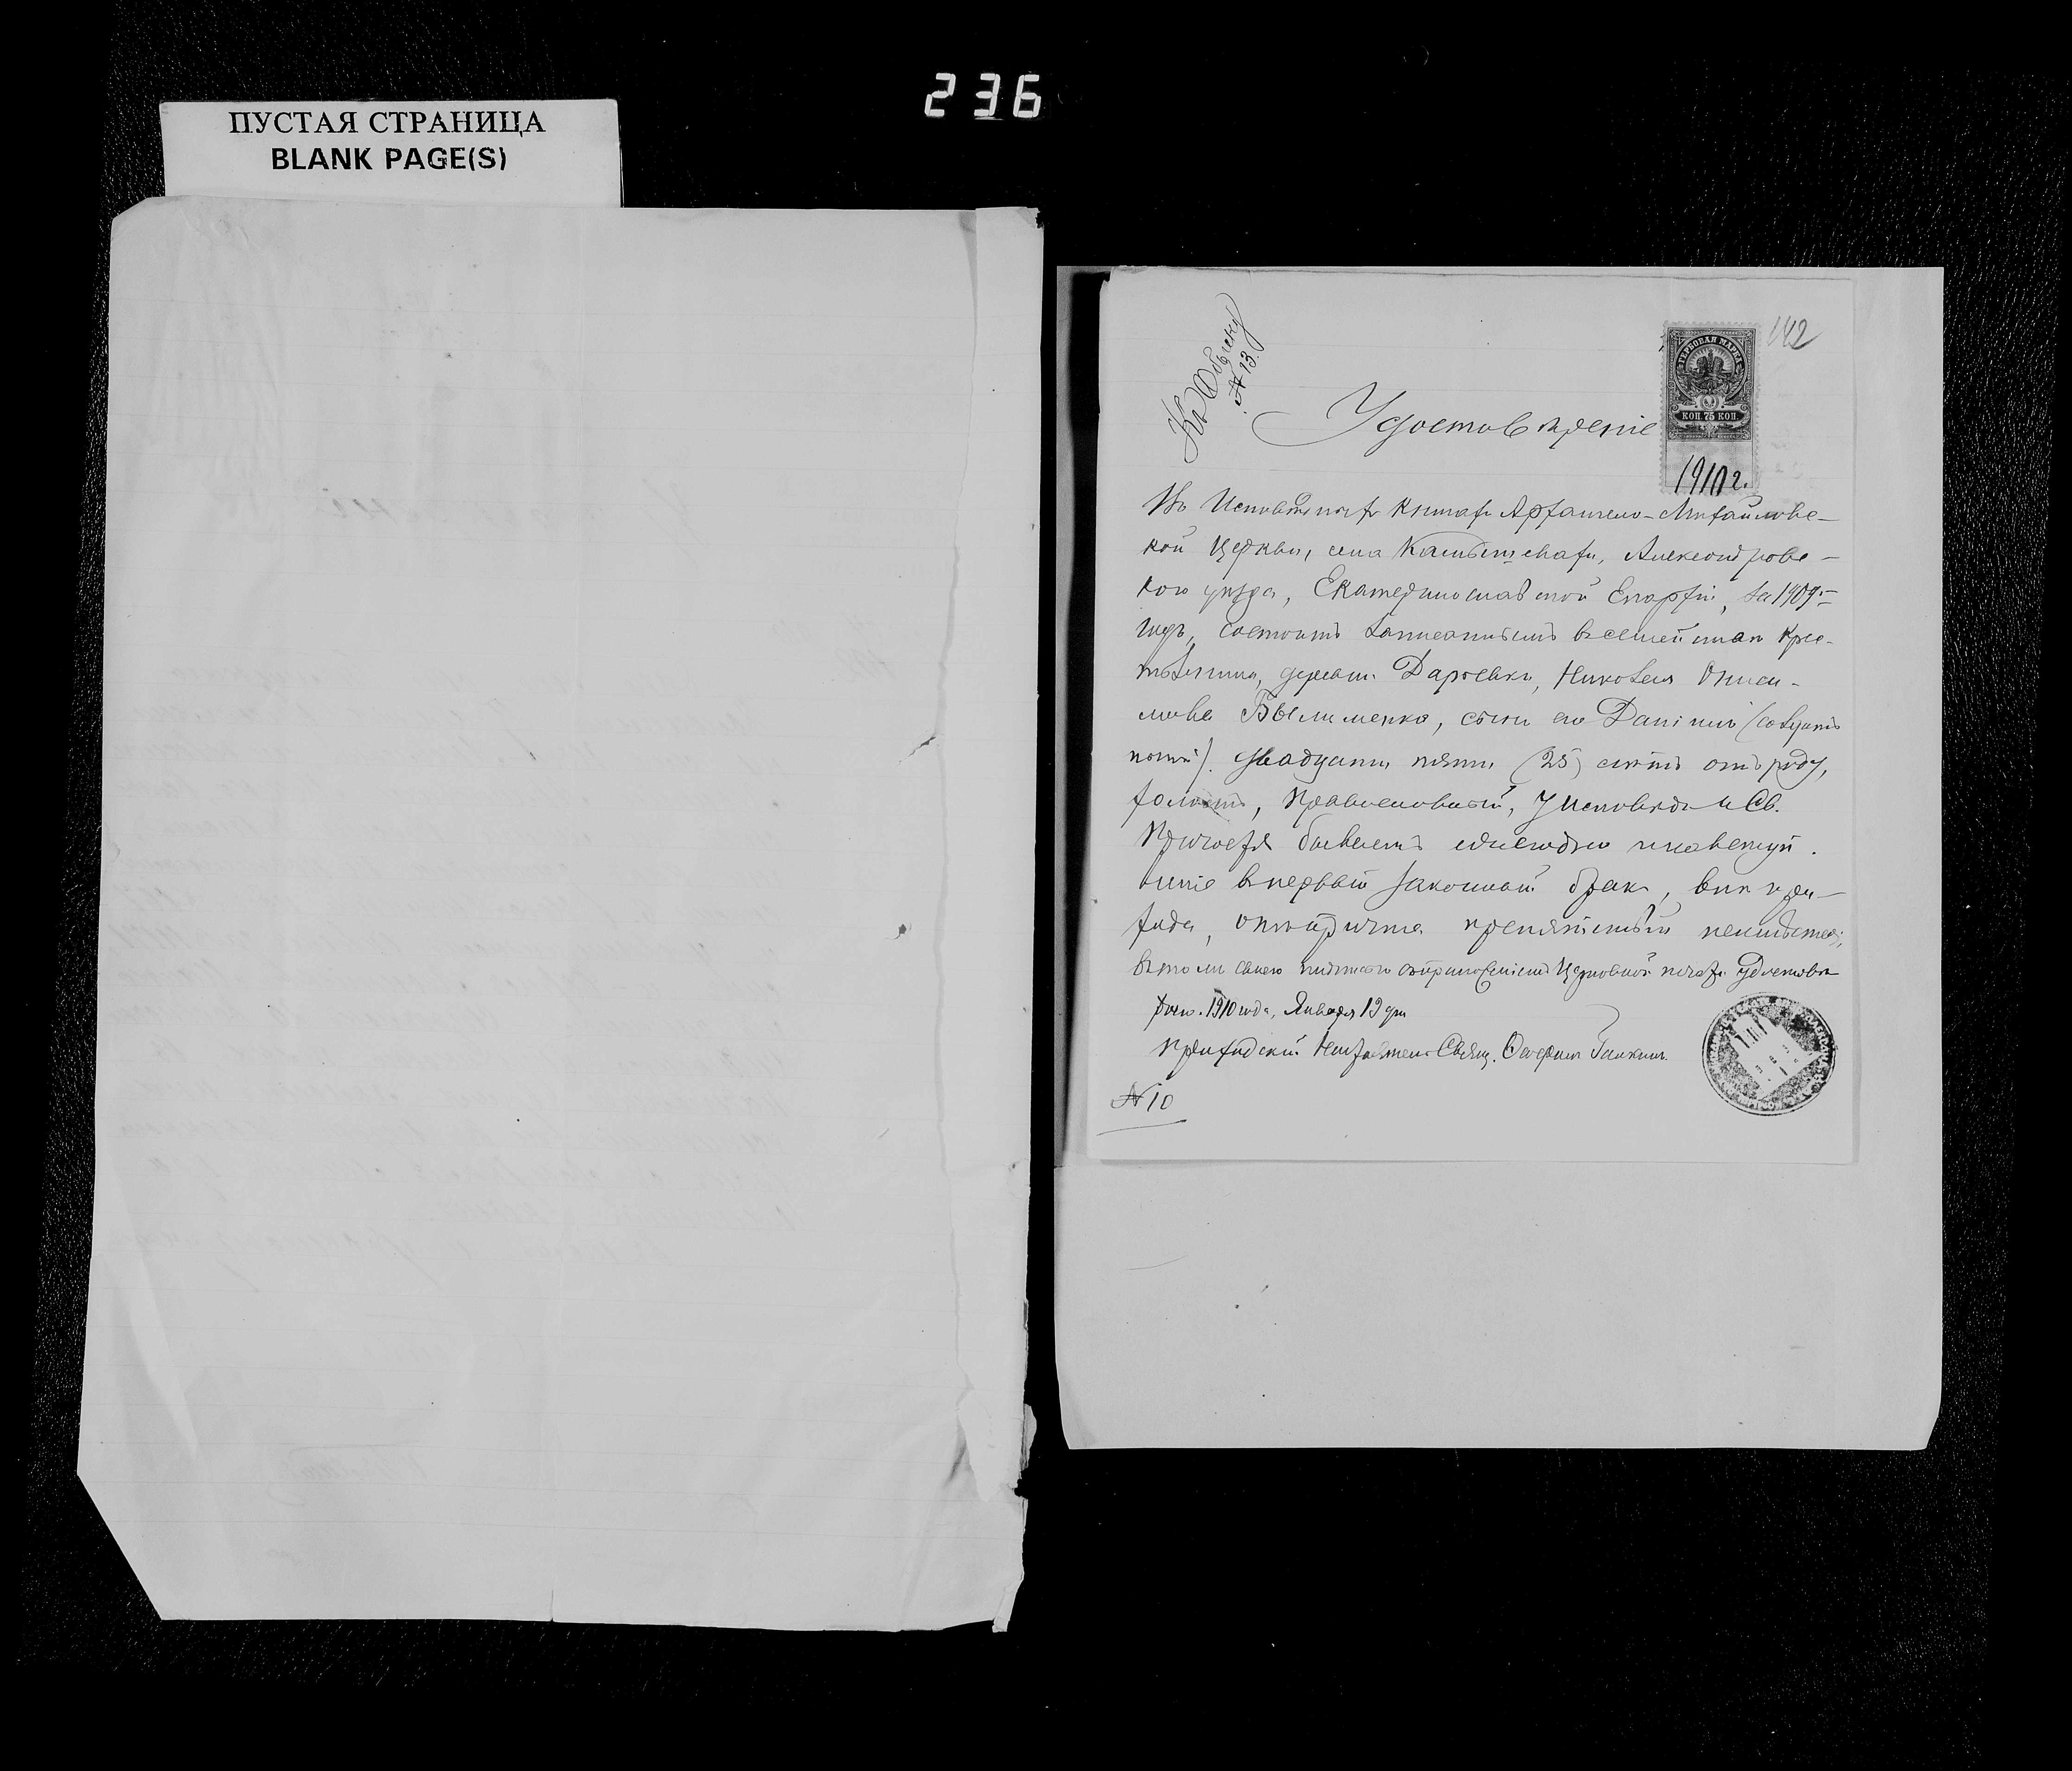 236
ПУСТАЯ СТРАНИЦА
BLANK PAGE(S)
Къ Обыску
№ 13.
142
ГЕРБОВАЯ МАРКА
КОП. 75 КОП.
1910 г.
Удостовѣреніе
Въ Исповѣдной книгѣ Архангело-Михайловс-
кой церкви, села Камышевахи, Александровс-
кого уѣзда, Екатеринославской Епархіи, за 1909-
годъ, состоитъ записаннымъ въ семействѣ Крес-
тьянина, деревни Даровки, НиколаяОниси-
мова сынъ его Даніилъ
двадцати пяти (25) лѣтъ отъ роду,
холостъ, Православный, у Исповѣди и Св.
Причастія бываетъ ежегодно
въ первый законный бракъ, внѣ при-
хода, препятствій
въ томъ своею подписью съ приложеніемъ Церковной печати удостовѣ-
ряю. 1910 года, Января 19 дня
Приходскій Настоятель Свящ.
№ 10